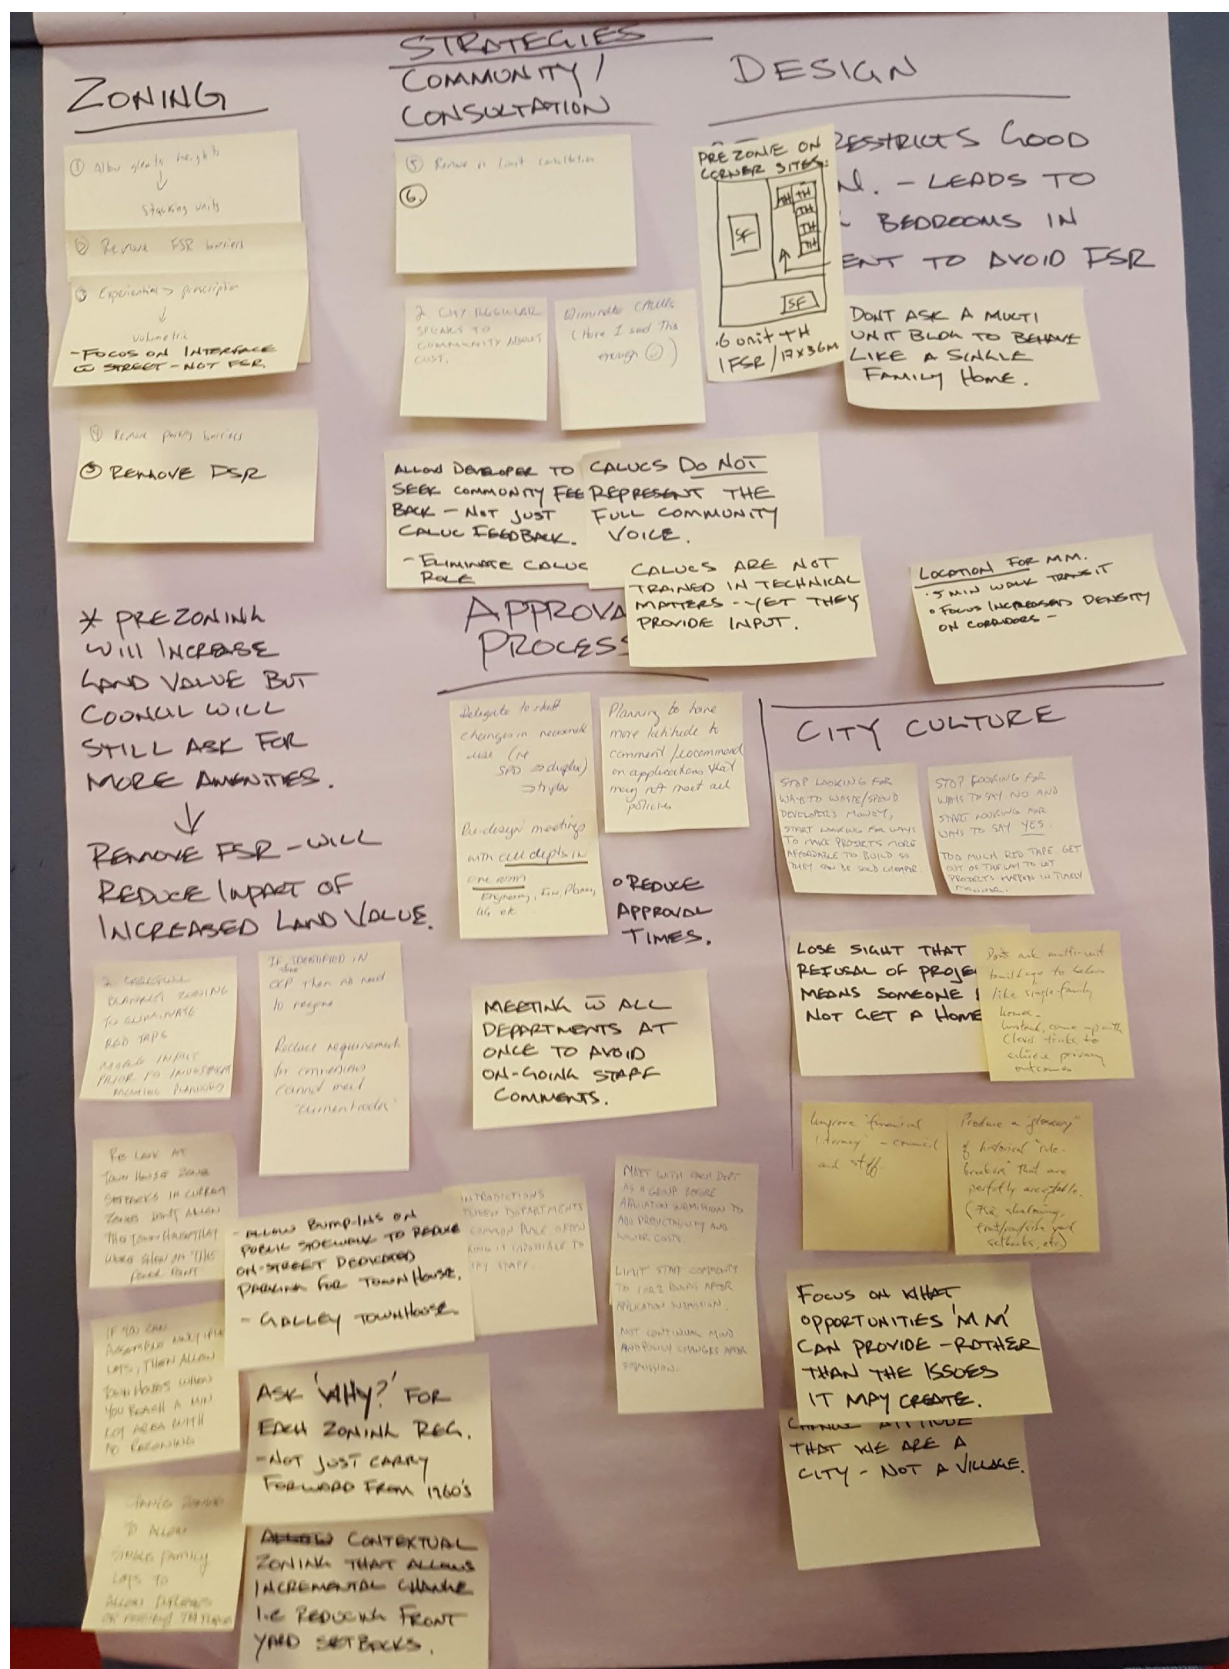 STRATEGIES
ZONING
① Allow heights
↓
Stacking units
② Remove FSR barriers
③ Experiential > prescription
↓
volumetric
- FOCUS ON INTERFACE
STREET - NOT FSR.
④ Remove parking barriers
⑤ REMOVE DSR
* PREZONING
WILL INCREASE
LAND VALUE BUT
COUNCIL WILL
STILL ASK FOR
MORE AMENITIES.
↓
REMOVE FSR - WILL
REDUCE IMPACT OF
INCREASED LAND VALUE.
BLANKET ZONING
TO ELIMINATE
RED TAPE
PRIOR TO INVESTMENT
IF IDENTIFIED IN
OCP then no need
to rezone
Reduce requirements
for conversions
cannot meet
"current codes"
RE LOOK AT
TOWN HOUSE ZONE
SETBACKS IN CURRENT
ZONES DON'T ALLOW
THE TOWNHOUSE THAT
WERE SHOWN IN THIS
POWER POINT
- ALLOW BUMP-INS ON
PUBLIC SIDEWALK TO REDUCE
ON-STREET DEDICATED
PARKING FOR TOWNHOUSE.
- GALLEY TOWNHOUSE
IF YOU CAN
ASSEMBLE MULTIPLE
LOTS, THEN ALLOW
TOWN HOUSES WHEN
YOU REACH A MIN
LOT AREA WITH
NO REZONING
ASK 'WHY?' FOR
EACH ZONING REG.
- NOT JUST CARRY
FORWARD FROM 1960'S
CHANGE ZONING
TO ALLOW
SINGLE FAMILY
LOTS TO
ALLOW
CONTEXTUAL
ZONING THAT ALLOWS
INCREMENTAL CHANGE
I.E REDUCING FRONT
YARD SETBACKS.
COMMUNITY /
CONSULTATION
⑤ Remove or limit consultation
⑥.
2. CITY REGULAR
SPEAKS TO
COMMUNITY ABOUT
COST.
Eliminate CALUCs
(Have I said this
enough ☺)
ALLOW DEVELOPER TO
SEEK COMMUNITY FEE
BACK - NOT JUST
CALUC FEEDBACK.
- ELIMINATE CALUC
ROLE
CALUCS DO NOT
REPRESENT THE
FULL COMMUNITY
VOICE.
CALUCS ARE NOT
TRAINED IN TECHNICAL
MATTERS - YET THEY
PROVIDE INPUT.
APPROVA
PROCESS
Delegate to staff
changes in
use (ie
SFD → duplex)
→ triplex
Planning to have
more latitude to
comment / recommend
on applications that
may not meet all
policies
Re-design meetings
with all depts in
one room
Engineering, Fire, Planning,
etc.
• REDUCE
APPROVAL
TIMES.
MEETING W ALL
DEPARTMENTS AT
ONCE TO AVOID
ON-GOING STAFF
COMMENTS.
NTRADICTIONS
TWEEN DEPARTMENTS
COMMON PLACE OFTEN
KING IT IMPOSSIBLE TO
SFY STAFF.
MEET WITH EACH DEPT
AS A GROUP BEFORE
APPLICATION SUBMISSION TO
ADD PREDICTABILITY AND
LOWER COSTS.
LIMIT STAFF COMMENTS
TO 1 OR 2 ROUNDS AFTER
APPLICATION SUBMISSION.
NOT CONTINUAL MIND
AND POLICY CHANGES AFTER
SUBMISSION.
DESIGN
RESTRICTS GOOD
N. - LEADS TO
BEDROOMS IN
ENT TO AVOID FSR
PREZONE ON
CORNER SITES:
SF
TH
TH
TH
TH
TH
TH
SF
.6 unit TH
1 FSR / 17x36M
DONT ASK A MULTI
UNIT BLDG TO BEHAVE
LIKE A SINGLE
FAMILY HOME.
LOCATION FOR MM.
• 5 MIN WALK TRANSIT
• FOCUS INCREASED DENSITY
ON CORRIDORS -
CITY CULTURE
STOP LOOKING FOR
WAYS TO WASTE/SPEND
DEVELOPERS MONEY,
START LOOKING FOR WAYS
TO MAKE PROJECTS MORE
AFFORDABLE TO BUILD SO
THEY CAN BE SOLD CHEAPER.
STOP LOOKING FOR
WAYS TO SAY NO AND
START LOOKING FOR
WAYS TO SAY YES.
TOO MUCH RED TAPE. GET
OUT OF THE WAY TO LET
PROJECTS HAPPEN IN TIMELY
MANNER.
LOSE SIGHT THAT
REFUSAL OF PROJE
MEANS SOMEONE
NOT GET A HOME
Don't ask multi-unit
buildings to behave
like single-family
homes.
Instead, come up with
clever tricks to
achieve privacy
outcomes
Improve "financial
literacy" - council
and staff
Produce a "glossary"
of historical "rule-
breakers" that are
perfectly acceptable.
(FSR, shadowing,
front/rear/side yard
setbacks, etc)
FOCUS ON WHAT
OPPORTUNITIES 'MM'
CAN PROVIDE - RATHER
THAN THE ISSUES
IT MAY CREATE.
CHANGE ATTITUDE
THAT WE ARE A
CITY - NOT A VILLAGE.